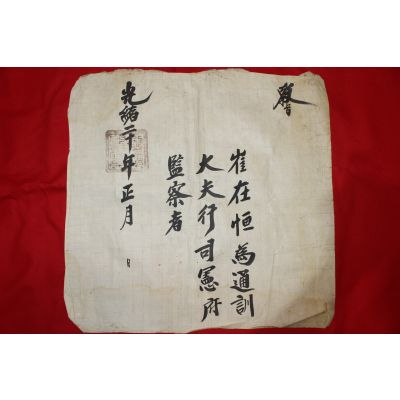 教旨
崔在恒爲通訓
大夫行司憲府
監察者
光緖二十年正月 日